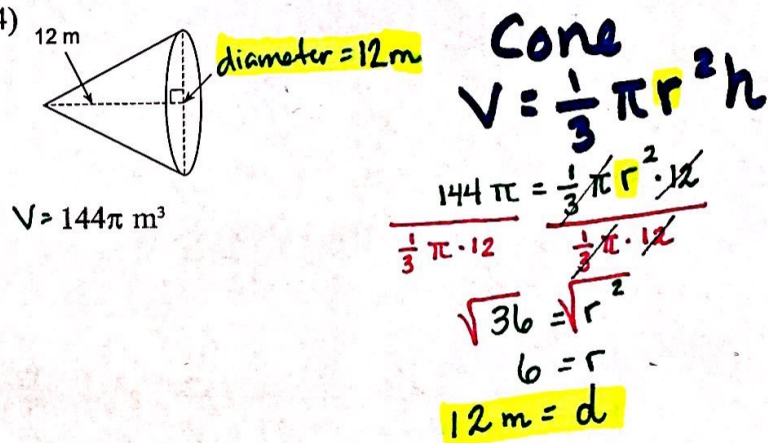 4)
12 m
diameter = 12m
V = 144π m³
Cone
V = 1/3 π r² h
144 π = 1/3 π r² · 12
1/3 π · 12  1/3 π · 12
√36 = √r²
6 = r
12 m = d